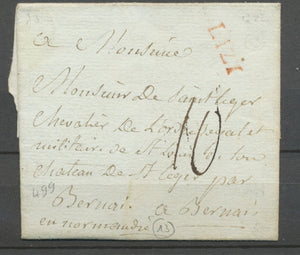 LIZI
a Monsieur
Monsieur De saint leger
Chevalier de L'ordre royal et
militaire de St Louis en son
chateau de St leger par
10
499
Bernai a Bernai
en normandie 13